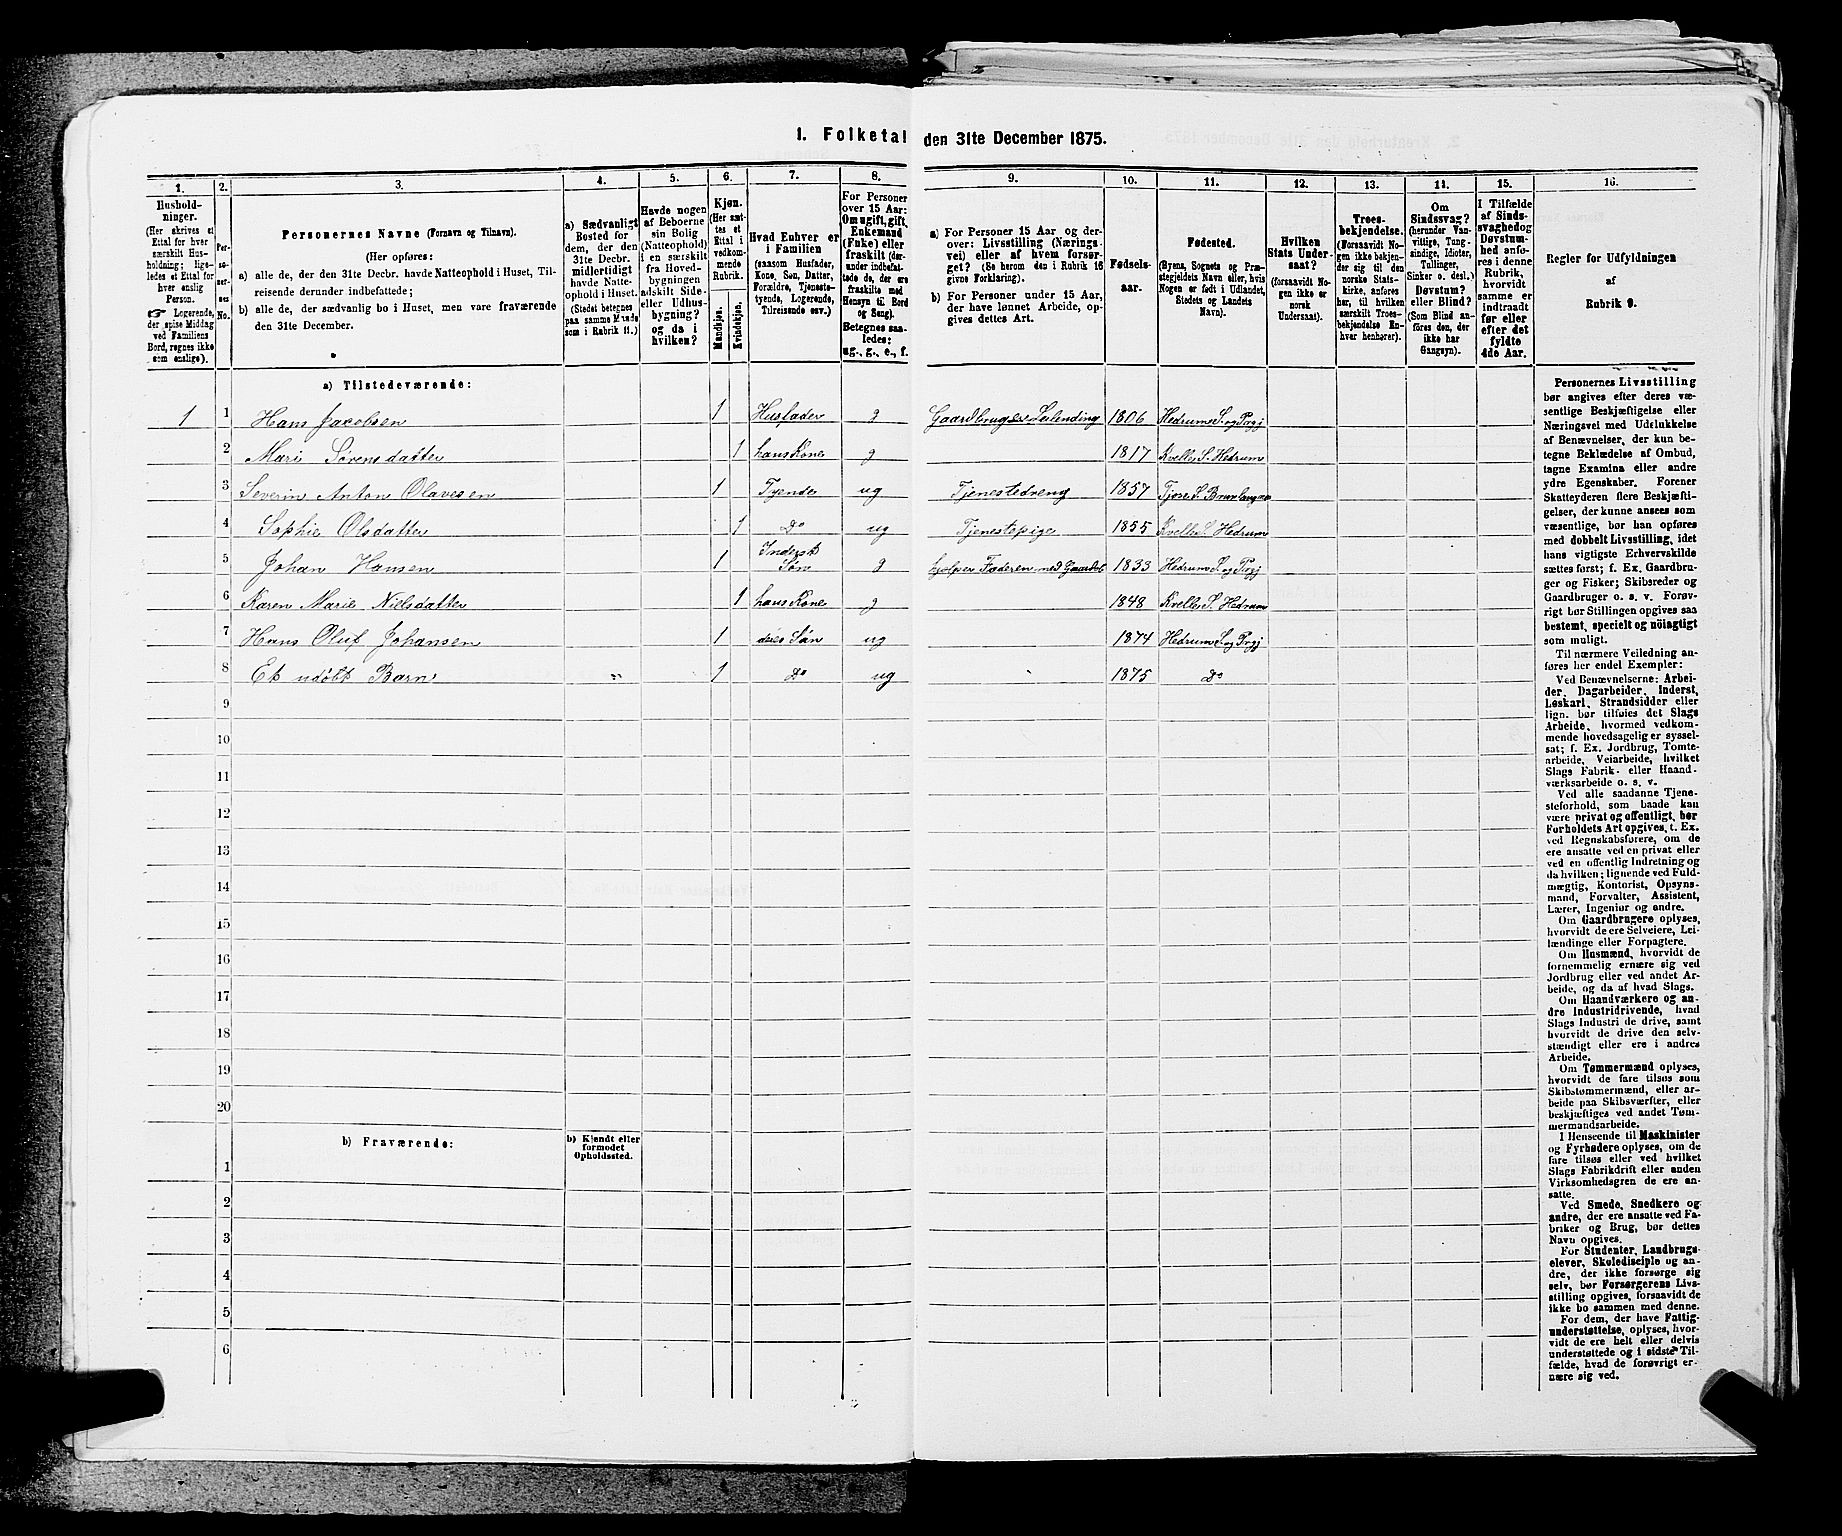 1. Folketal den 31te December 1875.
1. 2. 3. 4. 5. 6. 7. 8. 9. 10. 11. 12. 13. 14. 15. 16.
Hushold-
ninger.
(Her skrives et
Ettal for hver
særskilt Hus-
holdning; lige-
ledes et Ettal for
hver enslig
Person.
☞ Logerende,
der spise Middag
ved Familiens
Bord, regnes ikke
som enslige).
Per-
so-
ner-
nes
No.
Personernes Navne (Fornavn og Tilnavn).
(Her opføres:
a) alle de, der den 31te Decbr. havde Natteophold i Huset, Til-
reisende derunder indbefattede;
b) alle de, der sædvanlig bo i Huset, men vare fraværende
den 31te December.
a) Sædvanligt
Bosted for
dem, der den
31te Decbr.
midlertidigt
havde Natte-
ophold i Huset.
(Stedet betegnes
paa samme Maade
som i Rubrik 11.)
Havde nogen
af Beboerne
sin Bolig
(Natteophold)
i en særskilt
fra Hoved-
bygningen
adskilt Side-
eller Udhus-
bygning?
og da i
hvilken?
Kjøn.
(Her sæt-
tes et
Ettal i
vedkom-
mende
Rubrik.
Mandkjøn.
Kvindekjøn.
Hvad Enhver er
i Familien
(saasom Husfader,
Kone, Søn, Datter,
Forældre, Tjeneste-
tyende, Logerende,
Tilreisende osv.)
For Personer
over 15 Aar:
Om ugift, gift,
Enkemand
(Enke) eller
fraskilt (der-
under indbefat-
tede de, der ere
fraskilte med
Hensyn til Bord
og Seng).
Betegnes saa-
ledes:
ug., g., e., f.
a) For Personer 15 Aar og der-
over: Livsstilling (Nærings-
vei) eller af hvem forsør-
get? (Se herom den i Rubrik 16
givne Forklaring).
b) For Personer under 15 Aar,
der have lønnet Arbeide, op-
gives dettes Art.
Fødsels-
aar.
Fødested.
(Byens, Sognets og Præ-
stegjeldets Navn eller, hvis
Nogen er født i Udlandet,
Stedets og Landets
Navn).
Hvilken
Stats Under-
saat?
(forsaavidt No-
gen ikke er
norsk
Undersaat).
Troes-
bekjendelse.
(Forsaavidt No-
gen ikke bekjen-
der sig til den
norske Stats-
kirke, anføres
her, til hvilken
særskilt Troes-
bekjendelse En-
hver henhører).
Om
Sindssvag?
(herunder Van-
vittige, Tung-
sindige, Idioter,
Tullinger,
Sinker o. desl.)
Døvstum?
eller Blind?
(Som Blind an-
føres den, der
ikke har
Gangsyn).
I Tilfælde
af Sinds-
svaghed og
Døvstum-
hed anfø-
res i denne
Rubrik,
hvorvidt
samme er
indtraadt
før eller
efter det
fyldte
4de Aar.
Regler for Udfyldningen
af
Rubrik 9.
a) Tilstedeværende:
1 1 Hans Jacobsen 1 Husfader g Gaardbruger Leilending 1806 Hedrum S. og Prgj
2 Mari Sørensdatter 1 hans Kone g 1817 Kvelle S. Hedrum
3 Severin Anton Olavesen 1 Tyende ug Tjenestedreng 1857 Tjose S. Brunlangnes
4 Sophie Olsdatter 1 Do ug Tjenestepige 1855 Kvelle S. Hedrum
5 Johan Hansen 1 Inderst
Søn g hjælper Faderen med Gaardsb 1833 Hedrum S. og Prgj
6 Karen Marie Nielsdatter 1 hans Kone g 1848 Kvelle S. Hedrum
7 Hans Oluf Johansen 1 deres Søn ug 1874 Hedrum S. og Prgj
8 Et udøbt Barn " 1 Do ug 1875 Do
9
10
11
12
13
14
15
16
17
18
19
20
b) Fraværende:
b) Kjendt eller
formodet
Opholdssted.
1
2
3
4
5
6
Personernes Livsstilling
bør angives efter deres væ-
sentlige Beskjæftigelse eller
Næringsvei med Udelukkelse
af Benævnelser, der kun be-
tegne Beklædelse af Ombud,
tagne Examina eller andre
ydre Egenskaber. Forener
Skatteyderen flere Beskjæfti-
gelser, der kunne ansees som
væsentlige, bør han opføres
med dobbelt Livsstilling, idet
hans vigtigste Erhvervskilde
sættes først; f. Ex. Gaardbru-
ger og Fisker; Skibsreder og
Gaardbruger o. s. v. Forøv-
rigt bør Stillingen opgives saa
bestemt, specielt og nöiagtigt
som muligt.
Til nærmere Veiledning an-
føres her endel Exempler:
Ved Benævnelserne: Arbei-
der, Dagarbeider, Inderst,
Løskarl, Strandsidder eller
lign. bør tilføies det Slags
Arbeide, hvormed vedkom-
mende hovedsagelig er syssel-
sat; f. Ex. Jordbrug, Tomte-
arbeide, Veiarbeide, hvilket
Slags Fabrik- eller Haand-
værksarbeide o. s. v.
Ved alle saadanne Tjene-
steforhold, som baade kan
være privat og offentligt, bør
Forholdets Art opgives, t. Ex.
ved Regnskabsførere, om de
ere ansatte ved en privat eller
ved en offentlig Indretning og
da hvilken; lignende ved Fuld-
mægtig, Kontorist, Opsyns-
mand, Forvalter, Assistent,
Lærer, Ingeniør og andre.
Om Gaardbrugere oplyses,
hvorvidt de ere Selveiere, Lei-
lændinge eller Forpagtere.
Om Husmænd, hvorvidt de
fornemmelig ernære sig ved
Jordbrug eller ved andet Ar-
beide, og da af hvad Slags.
Om Haandværkere og an-
dre Industridrivende, hvad
Slags Industri de drive, samt
hvorvidt de drive den selv-
stændigt eller ere i andres
Arbeide.
Om Tømmermænd oplyses,
hvorvidt de fare tilsøs som
Skibstømmermænd, eller ar-
beide paa Skibsværfter, eller
beskjæftiges ved andet Tøm-
mermandsarbeide.
I Henseende til Maskinister
og Fyrbødere oplyses, om de
fare tilsøs eller ved hvilket
Slags Fabrikdrift eller anden
Virksomhedsgren de ere an-
satte.
Ved Smede, Snedkere og
andre, der ere ansatte ved Fa-
briker og Brug, bør dettes
Navn opgives.
For Studenter, Landbrugs-
elever, Skoledisciple og an-
dre, der ikke forsørge sig
selv, bør Forsørgerens Livs-
stilling opgives, forsaavidt de
ikke bo sammen med denne.
For dem, der have Fattig-
understøttelse, oplyses, hvor-
vidt de ere helt eller delvis
understøttede og i sidste Til-
fælde, hvad de forøvrigt er-
nære sig ved.